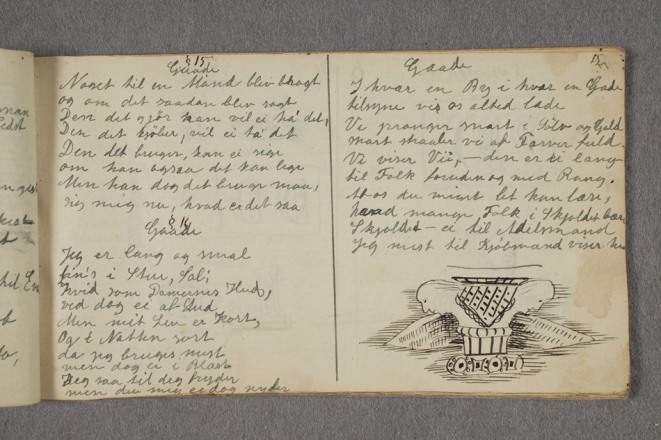 § 15
Gaade
Noget til en Mand blev bragt
og om det saadan blev sagt
Dem det gjør kan vil ei ha' det,
Den det kjøber, vil ei ta' det
Den det bruger, kan ei sige
om han ogsaa det kan lige
Men han dog det bruge maa,
sig mig nu, hvad er det saa
§ 16
Gaade
Jeg er lang og smal
fin's i Stue, Sal;
Hvid som Damernes Hud,
ved dog ei af Gud
Men mit Liv er Kort,
Og i Natten sort
da jeg bruges mest
men dog ei i Blæst
Jeg saa til dig
men du mig ei dog nyder
15
Gaade
I hvar en By i hvar en Gade
tilsyne vi os altid lade
Vi pranger snart i Sølv og Guld
snart straaler vi af Farver fuld.
Vi viser Vei, – den er ei lang
til Folk foruden og med Rang.
At os du mindst let kan lære,
hvad mange Folk i Skjoldet bære
Skjoldet – ei til Adelsmand
Jeg mest til Kjøbmand viser